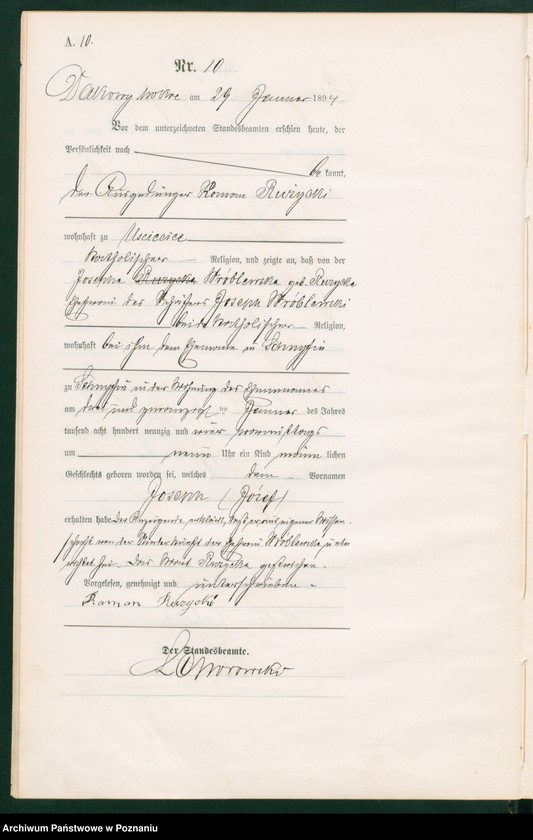 A. 10.
Nr. 10
Dakowy mokre am 29. Januar 1894
Vor dem unterzeichneten Standesbeamten erschien heute, der
Persönlichkeit nach
be kannt,
der Ausgedinger Roman Ruzycki
wohnhaft zu Uscicice
katholischer Religion, und zeigte an, daß von der
Josepha Ruzycka Wróblewska geb. Ruzycka
Ehefrau des Joseph Wróblewski
beide katholischer Religion,
wohnhaft bei ihm dem Ehemanne in
zu in der Wohnung des Ehemannes
am drei und zwanzigsten Januar des Jahres
tausend acht hundert neunzig und vier vormittags
um neun Uhr ein Kind männlichen
Geschlechts geboren worden sei, welches den Vornamen
Joseph (Józef)
erhalten habe. Der Anzeigende erklärt, daß er aus eigener Wissen-
schaft von der Niederkunft der Ehefrau Wróblewska unter-
richtet sei. Das Wort Ruzycka gestrichen.
Vorgelesen, genehmigt und unterschrieben.
Roman Ruzycki
Der Standesbeamte.
Archiwum Państwowe w Poznaniu